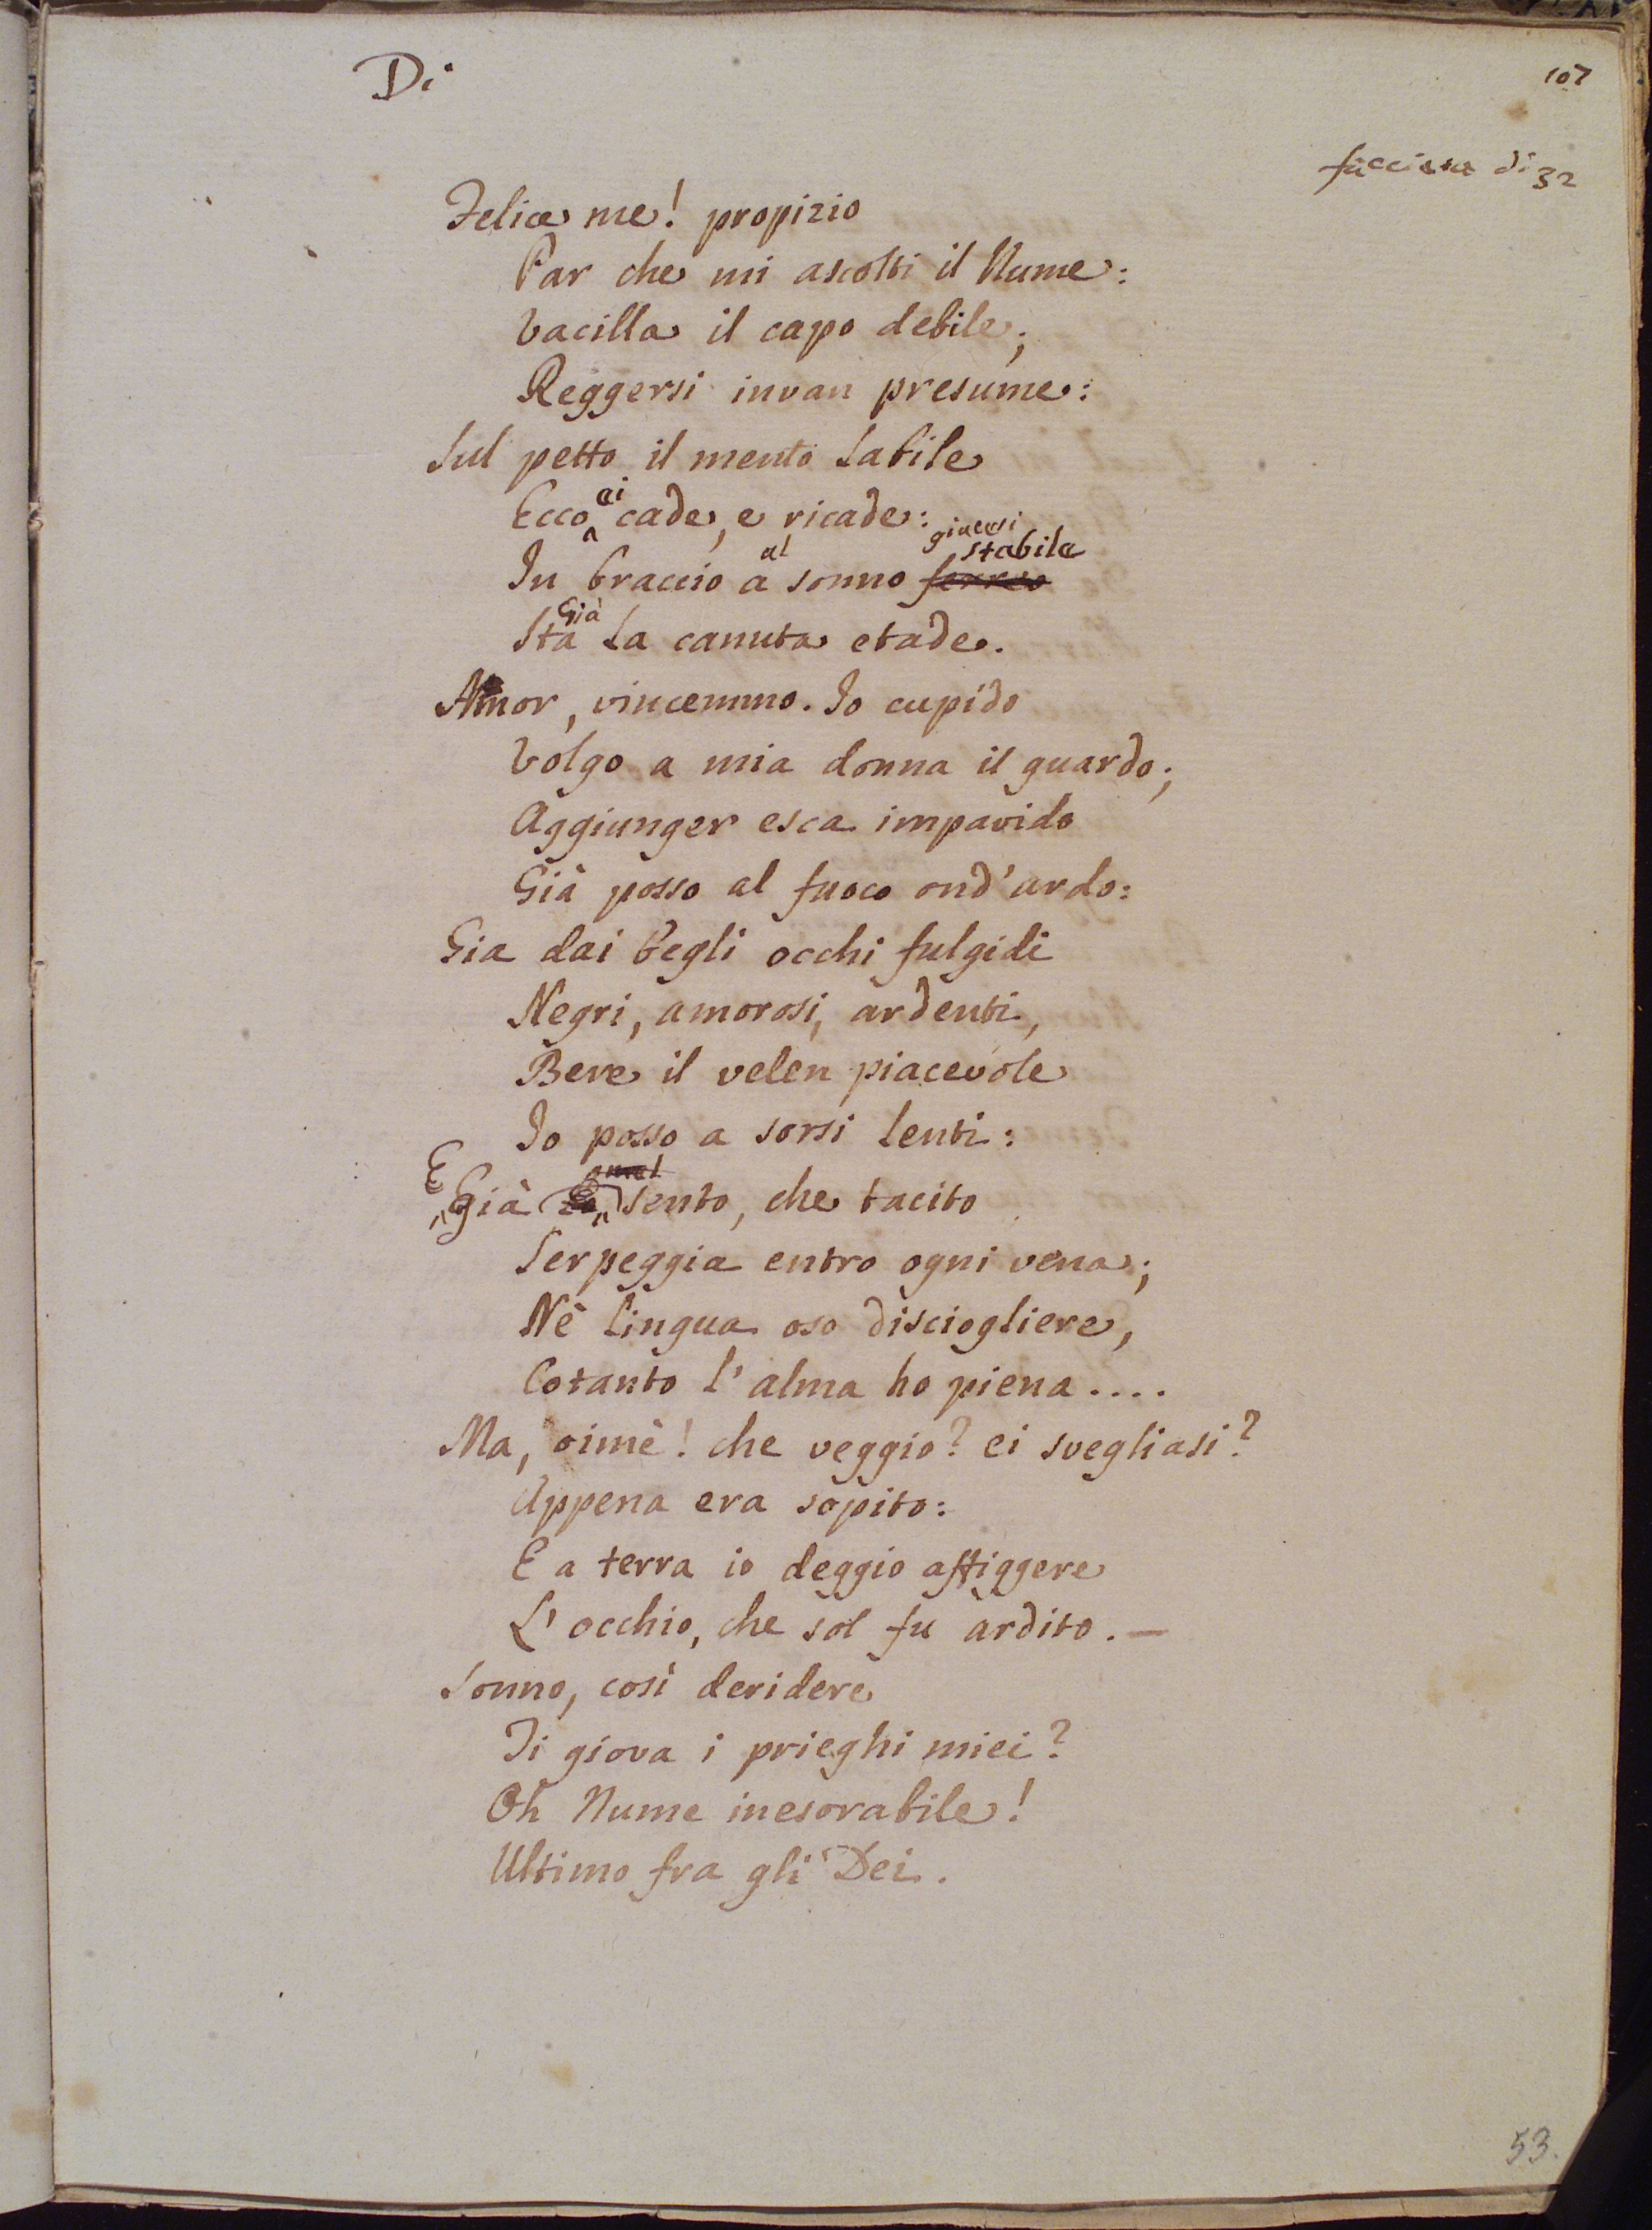 Di
107
facciata di 32
Felice me! propizio
Par che mi ascolti il Nume:
Vacilla il capo debile;
Reggersi invan presume:
Sul petto il mento labile
Ecco ei cade, e ricade:
giacesi
al stabile
In braccio a sonno ferreo
Già
Sta la canuta etade.
Amor, vincemmo. Io cupido
Volgo a mia donna il guardo;
Aggiunger esca impavido
Già posso al fuoco ond'ardo:
Gia dai begli occhi fulgidi
Negri, amorosi, ardenti,
Bere il velen piacevole
Io posso a sorsi lenti:
E già sento, che tacito
Serpeggia entro ogni vena;
Nè lingua oso disciogliere,
Cotanto l'alma ho piena....
Ma, oimè! che veggio? ei svegliasi?
Appena era sopito:
E a terra io deggio affiggere
L'occhio, che sol fu ardito. —
Sonno, così deridere
Ti giova i prieghi miei?
Oh Nume inesorabile!
Ultimo fra gli Dei.
53.